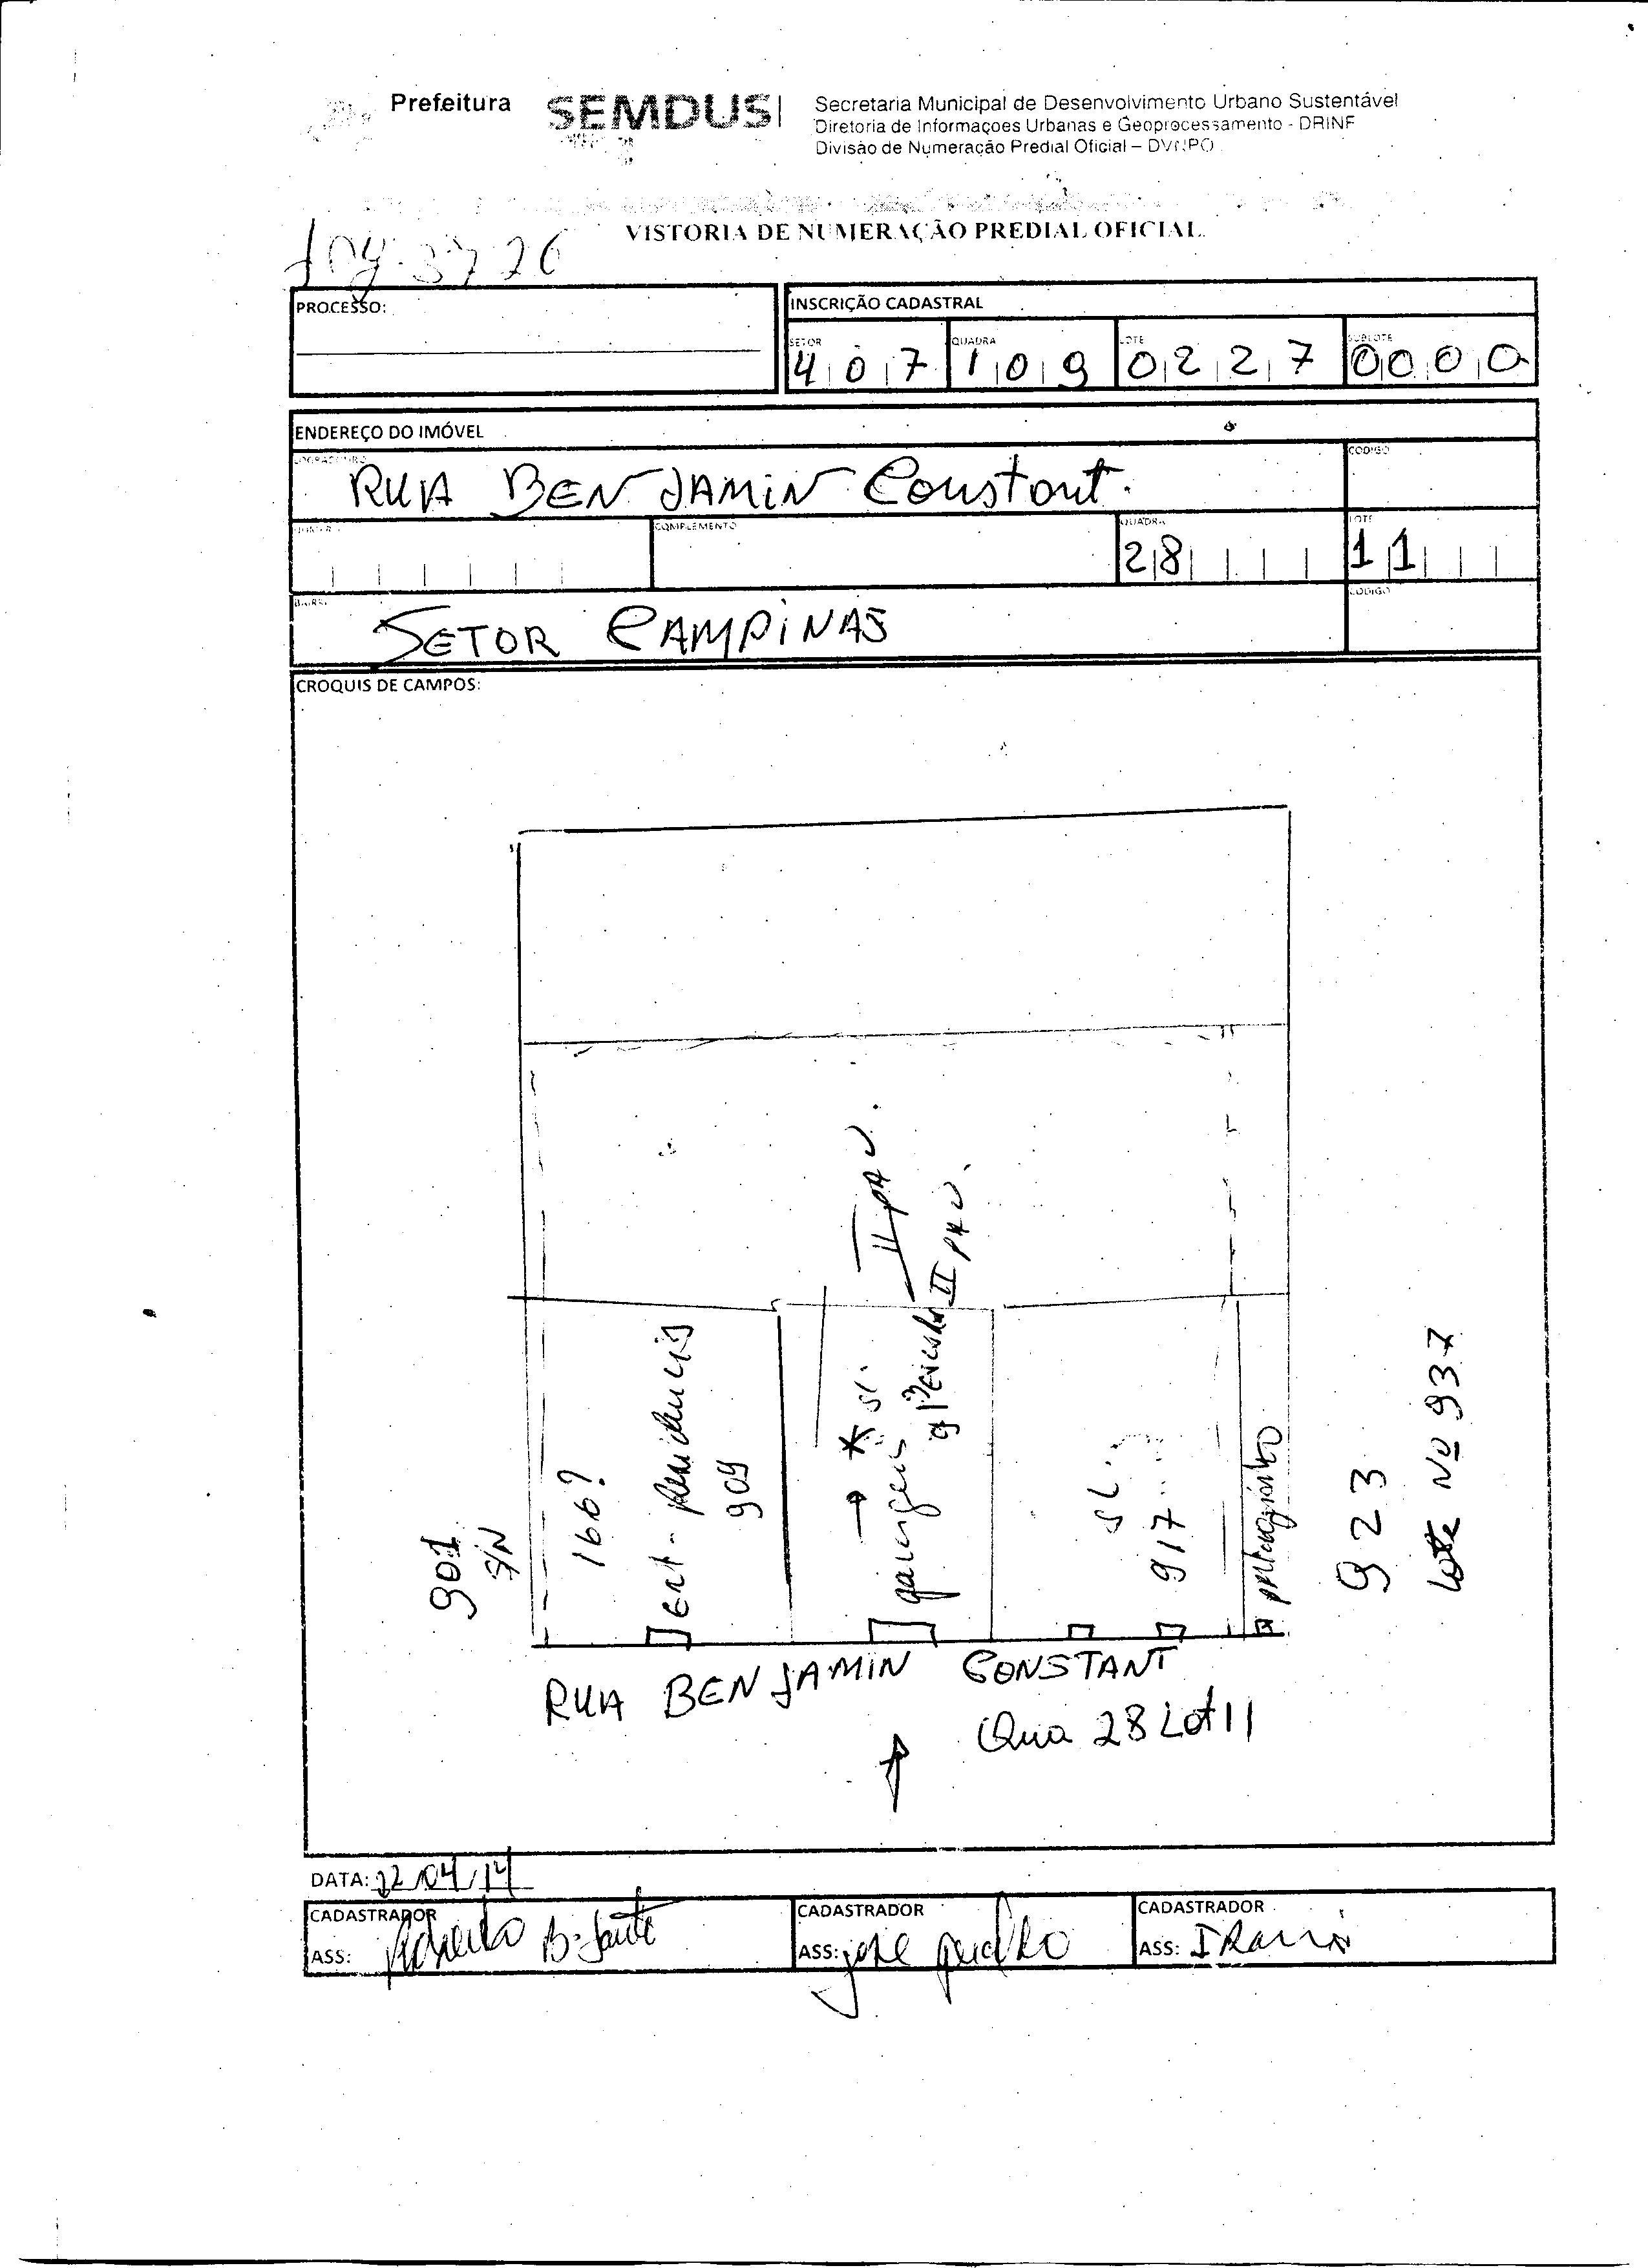 Prefeitura
SEMDUS
Secretaria Municipal de Desenvolvimento Urbano Sustentável
Diretoria de Informaçoes Urbanas e Geoprocessamento - DRINF
Divisão de Numeração Predial Oficial – DVNPO
VISTORIA DE NUMERAÇÃO PREDIAL OFICIAL
PROCESSO:
INSCRIÇÃO CADASTRAL
SETOR QUADRA LOTE SUBLOTE
407 109 0227 0000
ENDEREÇO DO IMÓVEL
LOGRADOURO CODIGO
RUA BENJAMIN Constant.
COMPLEMENTO QUADRA LOTE
28 11
BAIRRO CODIGO
SETOR CAMPINAS
CROQUIS DE CAMPOS:
II PAV.
II PAV.
166?
909
sl.
917
901
S/N
923
Lote Nº 937
RUA BENJAMIN CONSTANT
Qua 28 Lot 11
DATA: 22/04/14
CADASTRADOR CADASTRADOR CADASTRADOR
ASS: ASS: ASS: